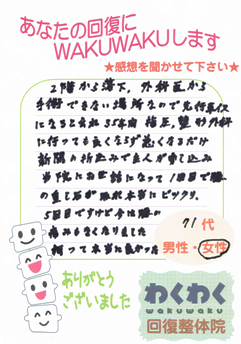 あなたの回復に
WAKUWAKUします
★感想を聞かせて下さい★
2階から落下。外科医から
手術できない場所なので先行車イス
になると云れ35年間 指正、整形外科
に行っても良くならず悪くなるだけ
新聞の折込みで主人が申し込み
当院にお世話になって1回目で腰
の重し石が取れ本当にビックリ。
5回目ですけど今は腰の
痛みもなくなりました
伺って本当に良かった
71代
男性・女性
ありがとう
ございました
わくわく
wakuwaku
回復整体院